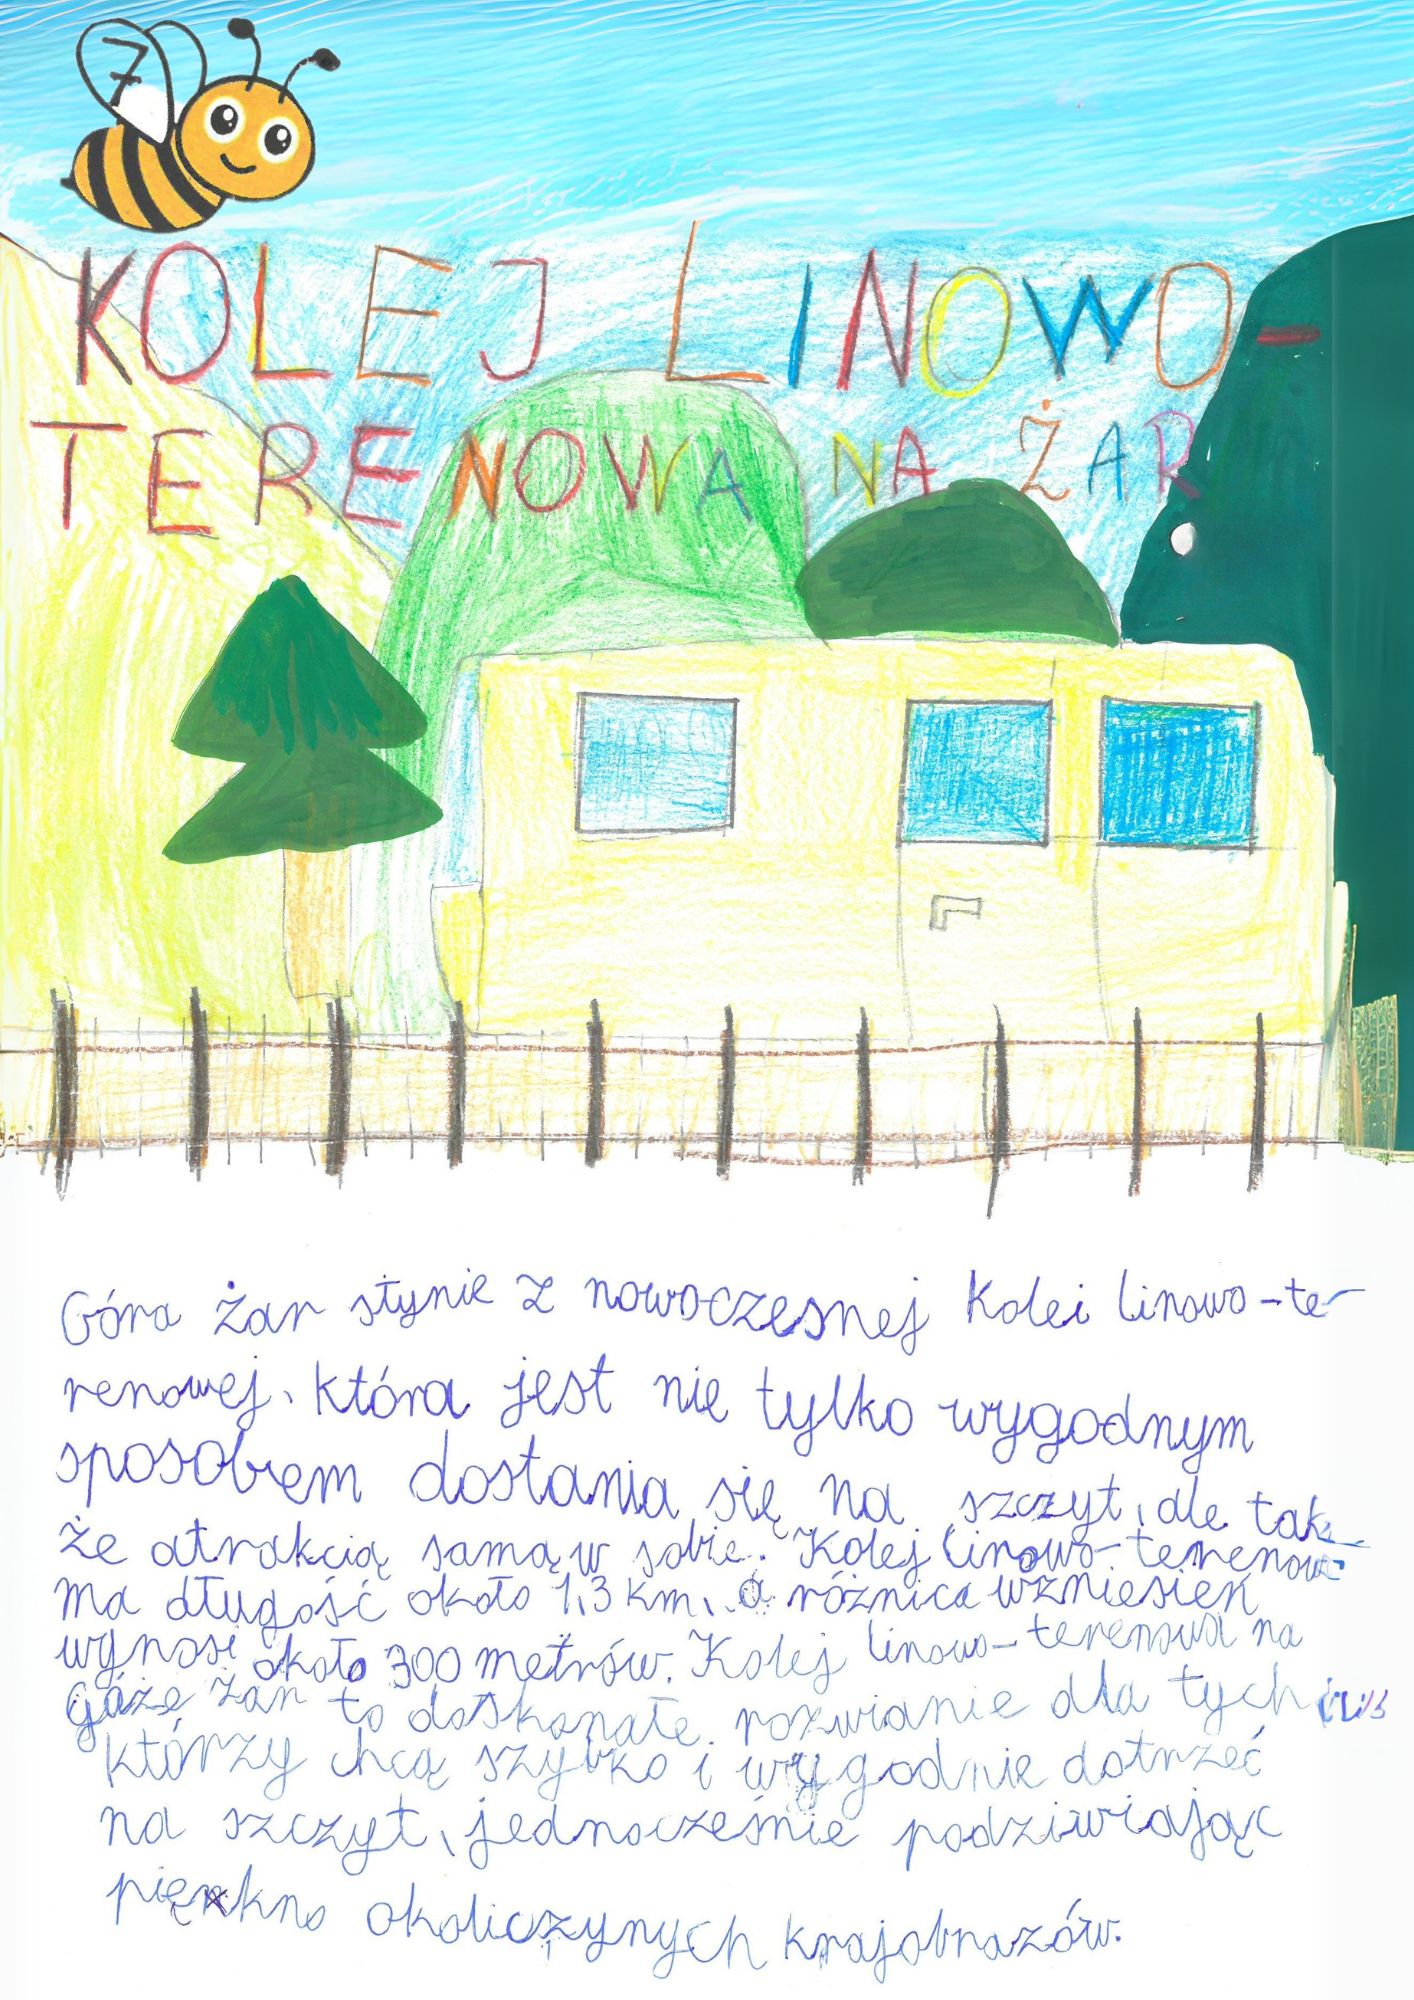 7
KOLEJ LINOWO-
TERENOWA NA ŻAR
Góra Żar słynie z nowoczesnej kolei linowo-te-
renowej, która jest nie tylko wygodnym
sposobem dostania się na szczyt, ale tak-
że atrakcją samą w sobie. Kolej linowo-terenowa
ma długość około 1,3 km, a różnica wzniesień
wynosi około 300 metrów. Kolej linowo-terenowa na
górze Żar to doskonałe rozwianie dla tych
którzy chcą szybko i wygodnie dotrzeć
na szczyt, jednocześnie podziwiając
piękno okolicznych krajobrazów.